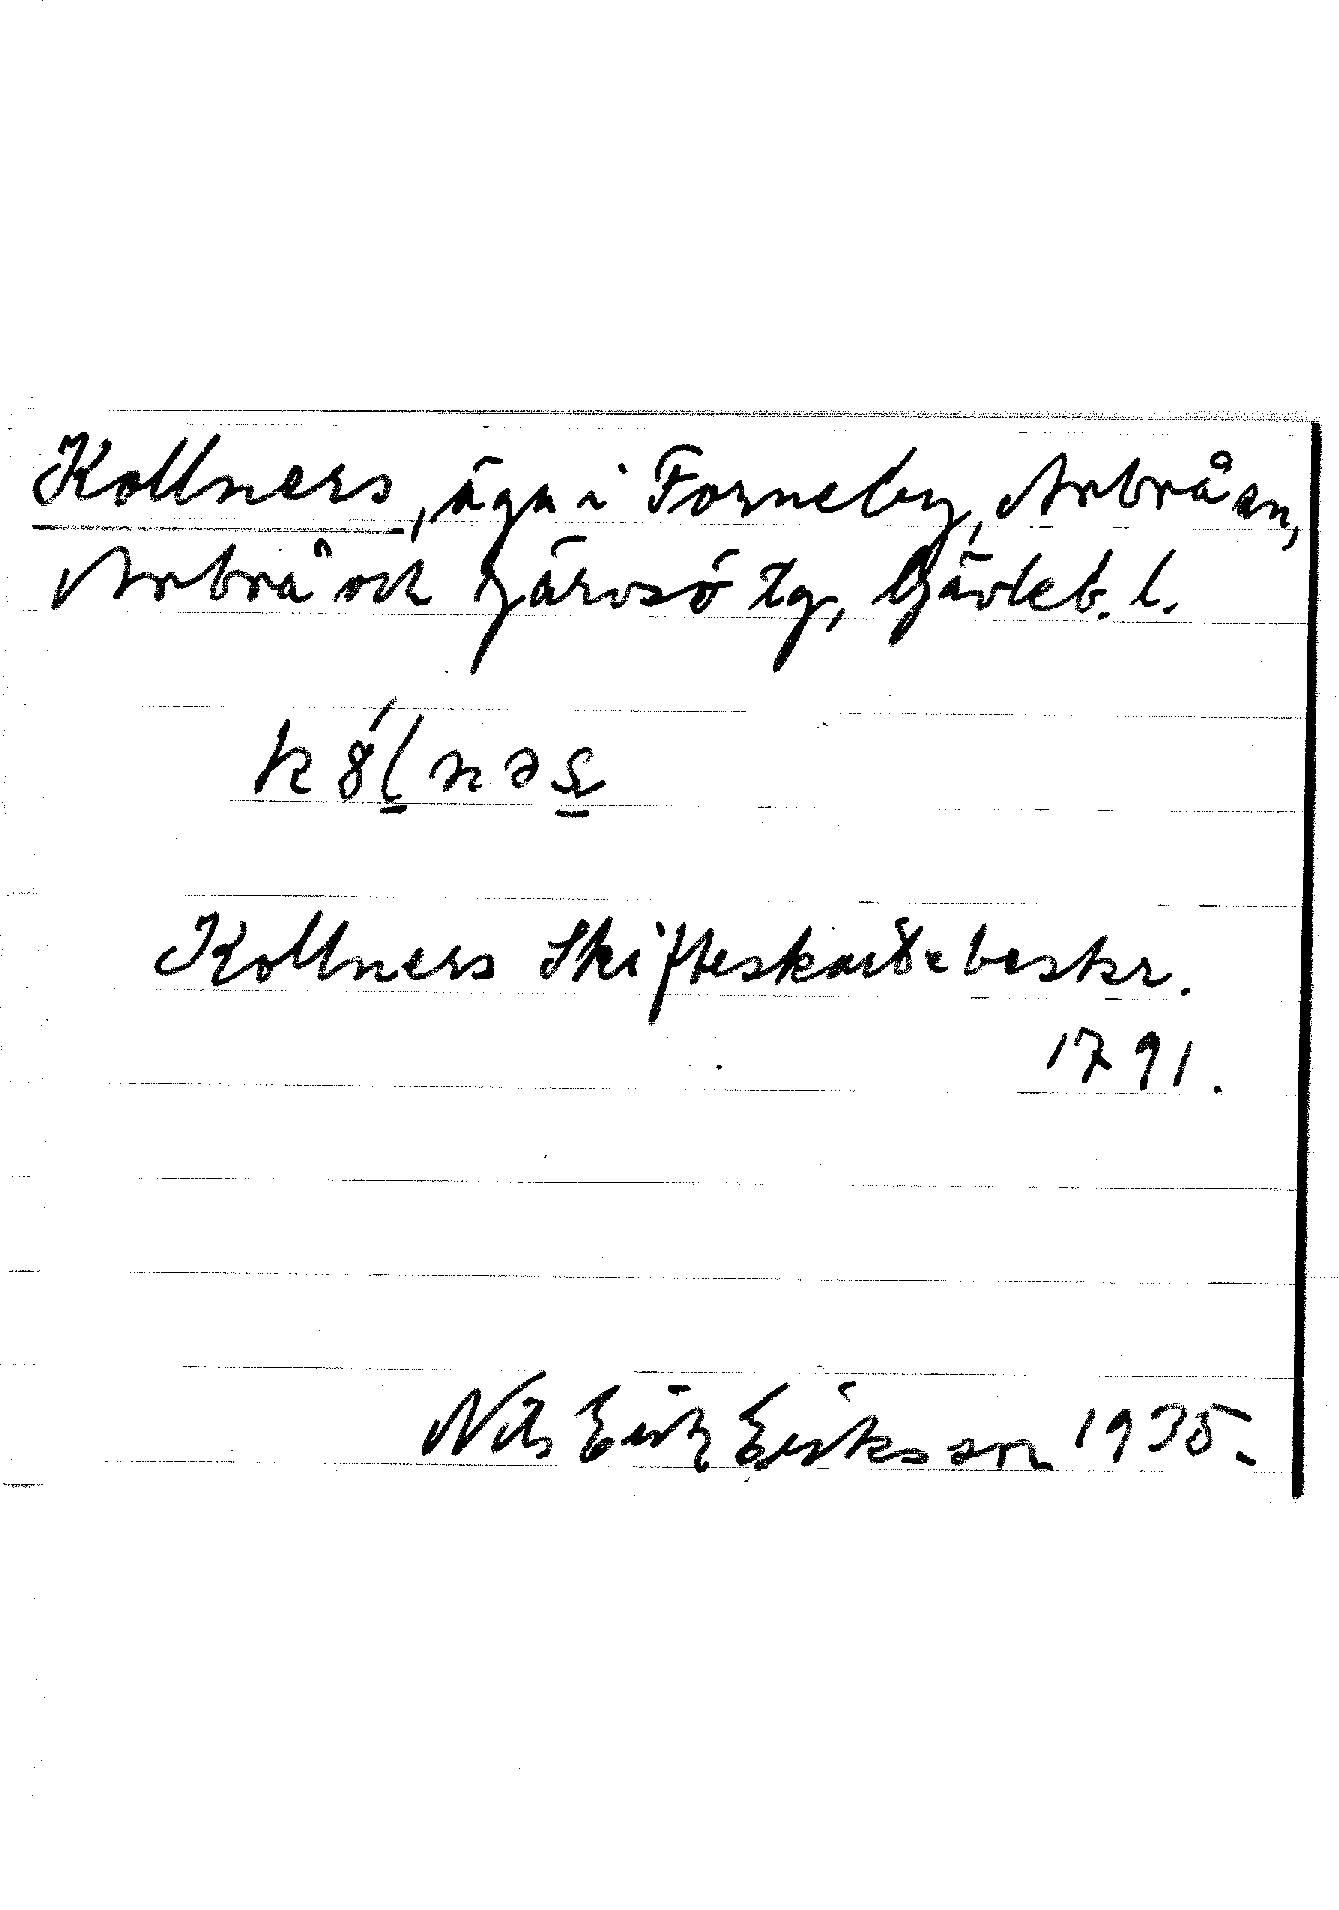 Kollners, äga i Forneby, Arbrå sn,
Arbrå och Järvsö tg, Gävleb. l.
Kollners Skifteskartebeskr.
1791.
Nils Erik Eriksson 1935.